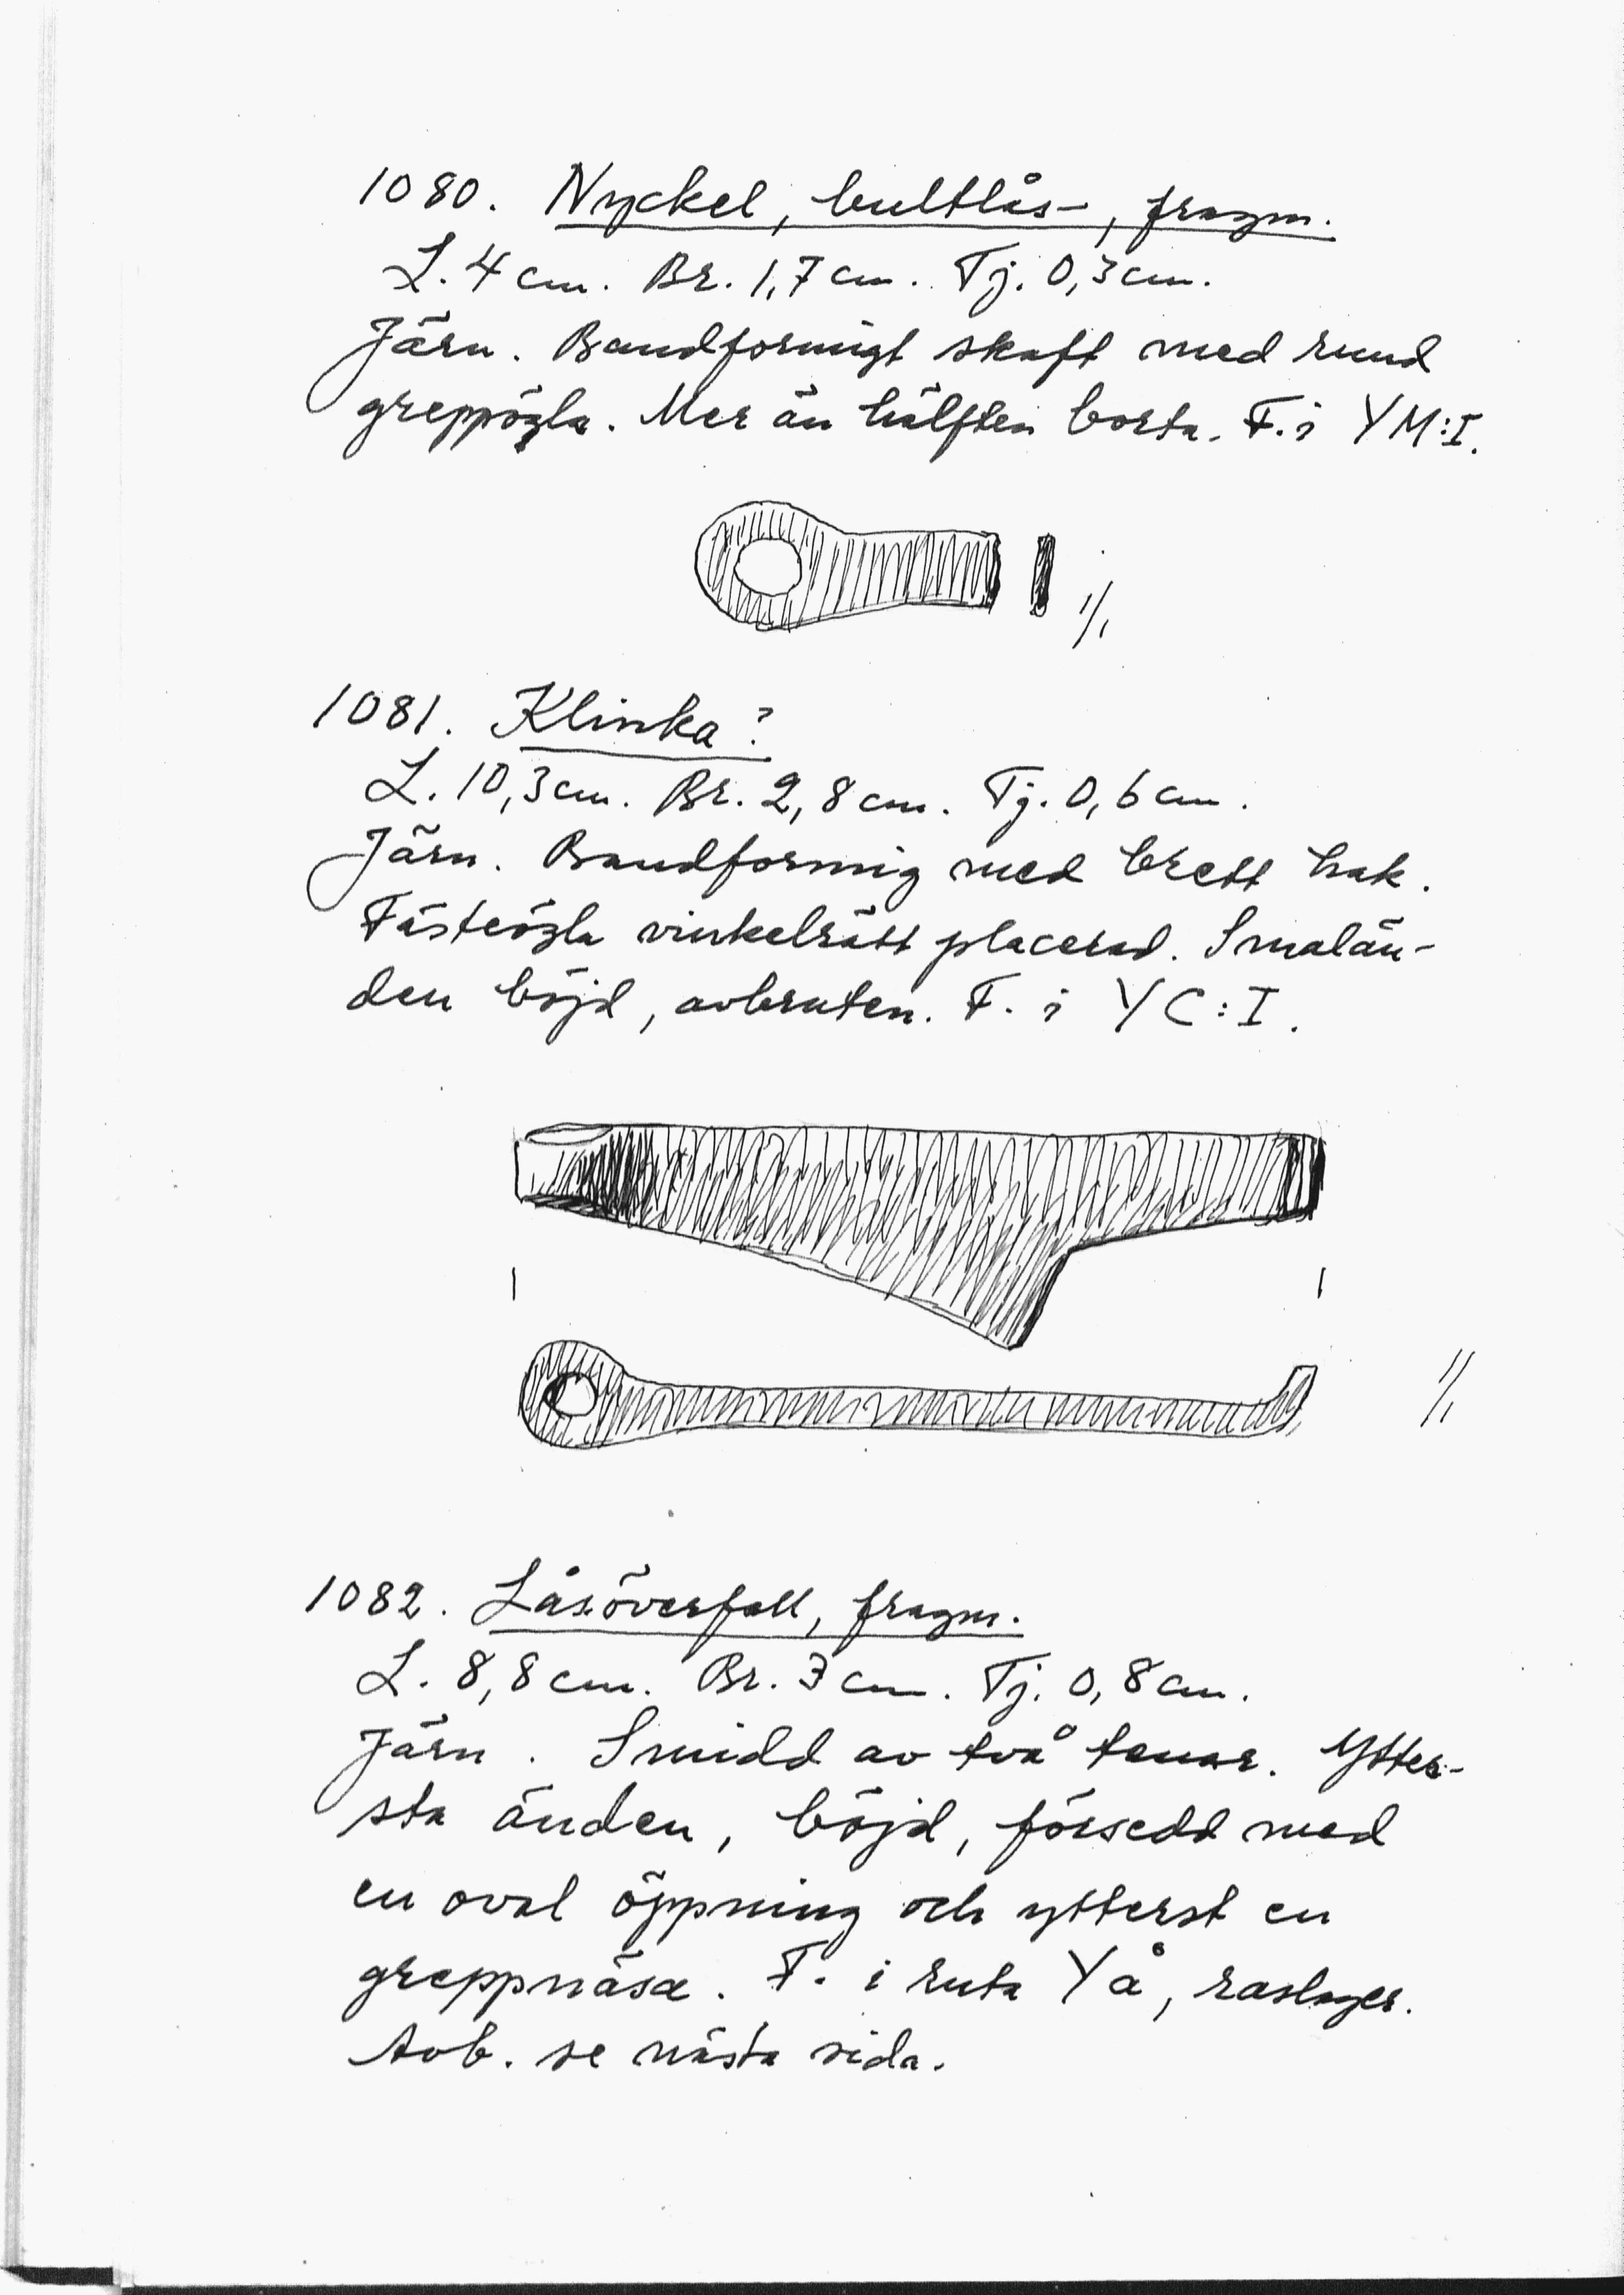 1080. Nyckel, bultlås-, fragm.
L. 4 cm. Br. 1,7 cm. Tj. 0,3 cm.
Järn. Bandformigt skaft med rund
greppögla. Mer än hälften borta. F. i YM:I.
1/1
1081. Klinka?
L. 10,3 cm. Br. 2,8 cm. Tj. 0,6 cm.
Järn. Bandformig med brett hak.
Fästeögla vinkelrätt placerad. Smalän-
den böjd, avbruten. F. i YC:I.
1/1
1082. Låsöverfall, fragm.
L. 8,8 cm. Br. 3 cm. Tj. 0,8 cm.
Järn. Smidd av två tenar. Ytter-
sta änden, böjd, försedd med
en oval öppning och ytterst en
greppnäsa. F. i ruta Yå, raslager.
Avb. se nästa sida.